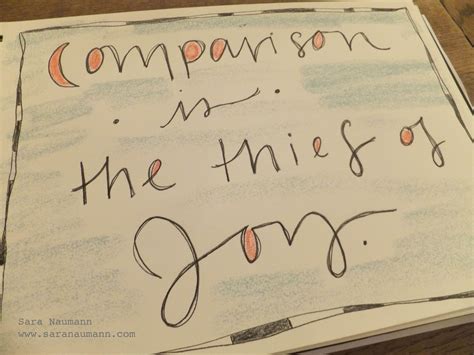 Comparison
is
the thief of
Joy.
Sara Naumann
www.saranaumann.com